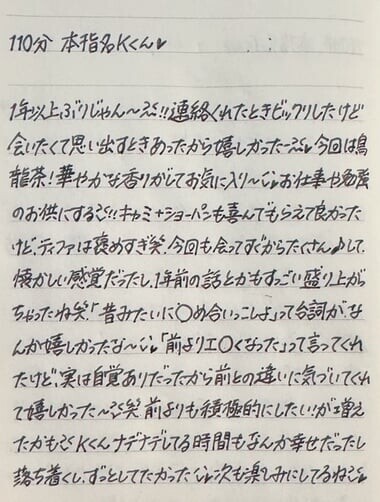 110分 本指名Kくん♥
1年以上ぶりじゃん〜!!連絡くれたときビックリしたけど
会いたくて思い出すときあったから嬉しかった〜♥今回は烏
龍茶!華やかな香りがしてお気に入り〜♥お仕事や勉強
のお供にする!!キャミ+ショーパンも喜んでもらえて良かった
けど、ティファは褒めすぎ笑 今回も会ってすぐからたくさん♪して、
懐かしい感覚だったし、1年前の話とかもすっごい盛り上がっ
ちゃったね笑「昔みたいに〇め合いっこしよ」って台詞がな
んか嬉しかったな〜♥「前よりエ〇くなった」って言ってくれ
たけど、実は自覚ありだったから前との違いに気づいてくれ
て嬉しかった〜笑 前よりも積極的にしたい!が増え
たかも Kくんナデナデしてる時間もなんか幸せだったし
落ち着くし、ずっとしてたかった♥次も楽しみにしてるね♥